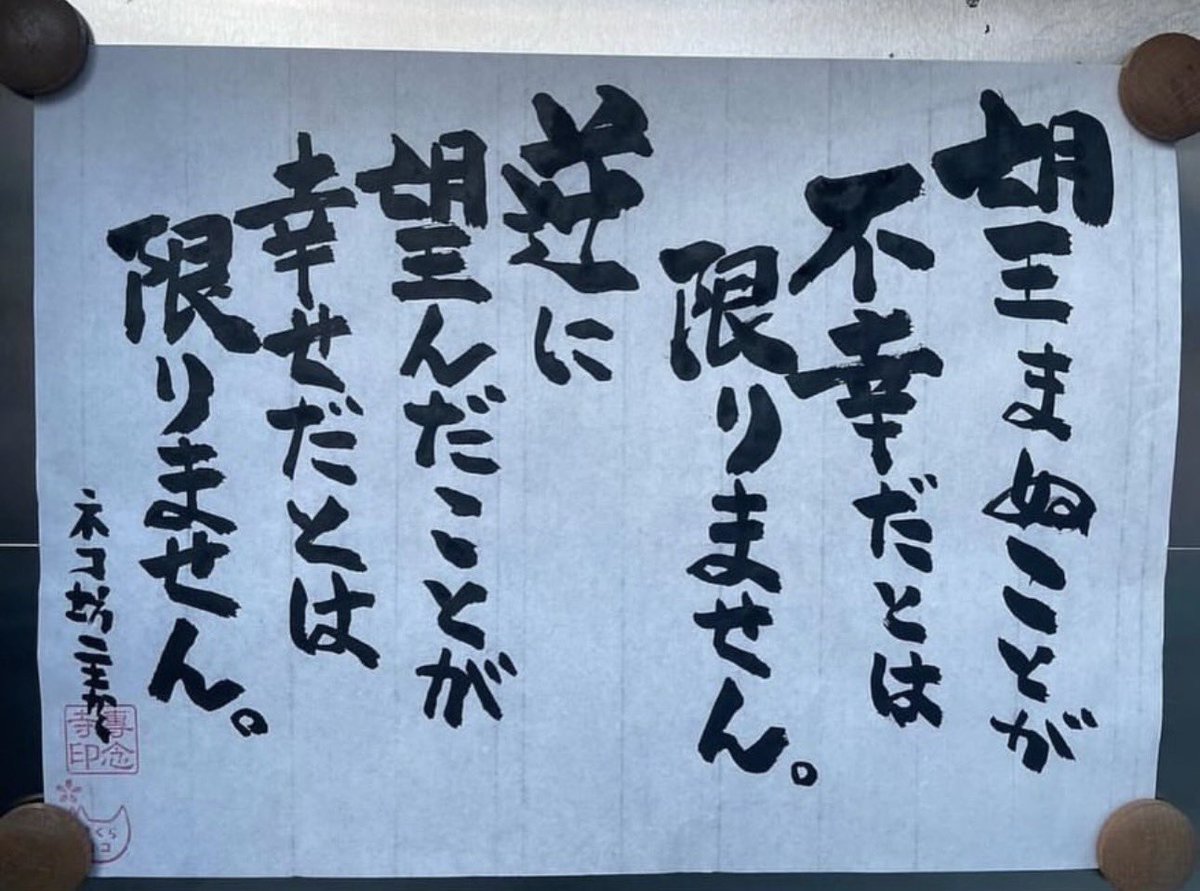 望まぬことが
不幸だとは
限りません。
逆に
望んだことが
幸せだとは
限りません。
ネコ坊主かく
專念
寺印
くら
コ